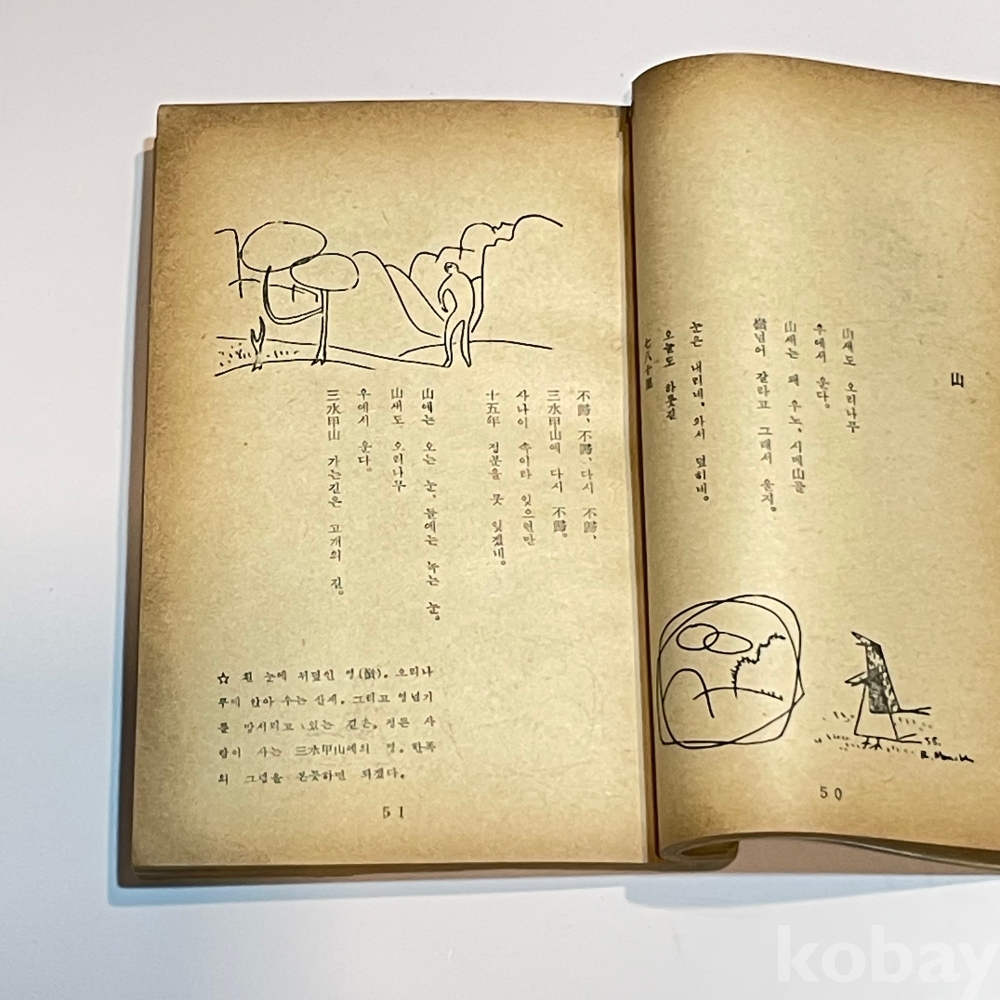 山
山새도 오리나무
우에서 운다。
山새는 왜 우노, 시메山골
嶺넘어 갈라고 그래서 울지。
눈은 내리네, 와서 덮히네。
오늘도 하룻길
七八十里
58.
50
不歸, 不歸, 다시 不歸,
三水甲山에 다시 不歸。
사나이 속이라 잊으련만
十五年 정분을 못 잊겠네。
山에는 오는 눈, 들에는 녹는 눈。
山새도 오리나무
우에서 운다。
三水甲山 가는길은 고개의 길。
☆ 흰 눈에 뒤덮인 영(嶺), 오리나
무에 앉아 우는 산새, 그리고 영넘기
를 망서리고 있는 길손, 정든 사
람이 사는 三水甲山에의 정, 한폭
의 그림을 본듯하면 되겠다.
51
kobay